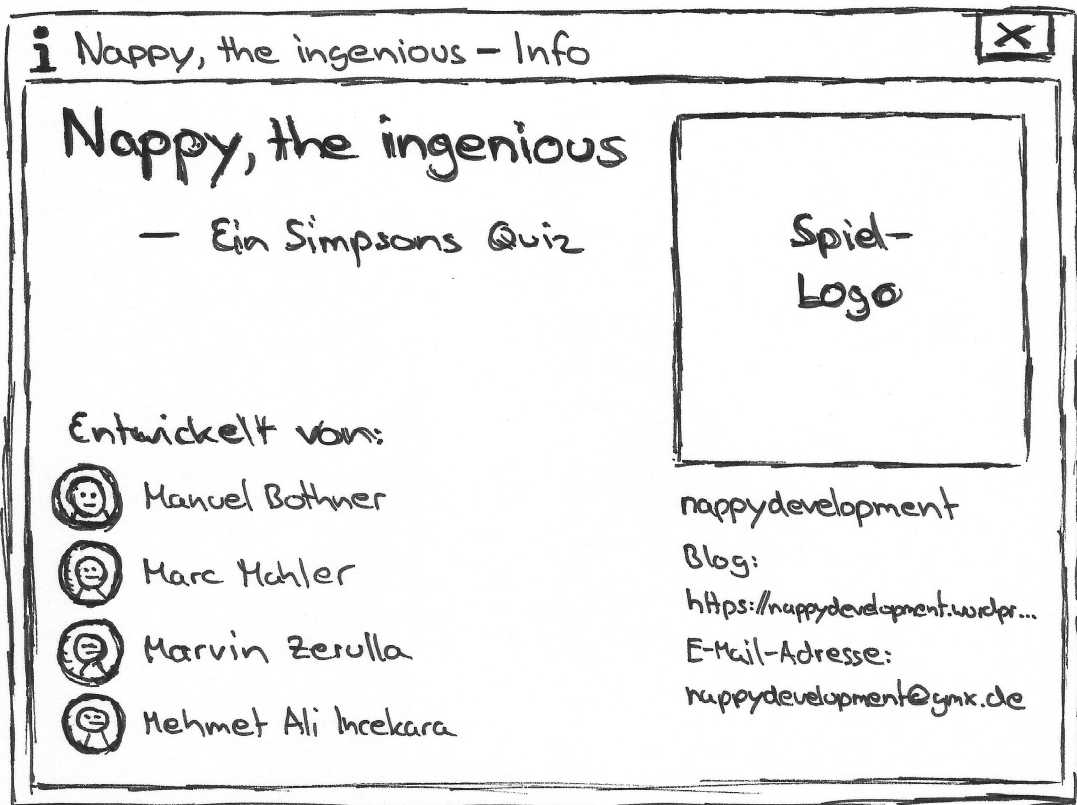 i Nappy, the ingenious – Info X
Nappy, the ingenious
– Ein Simpsons Quiz
Spiel-
Logo
Entwickelt von:
Manuel Bothner
Marc Mahler
Marvin Zerulla
Mehmet Ali Incekara
nappydevelopment
Blog:
https://nappydevelopment.wordpr...
E-Mail-Adresse:
nappydevelopment@gmx.de